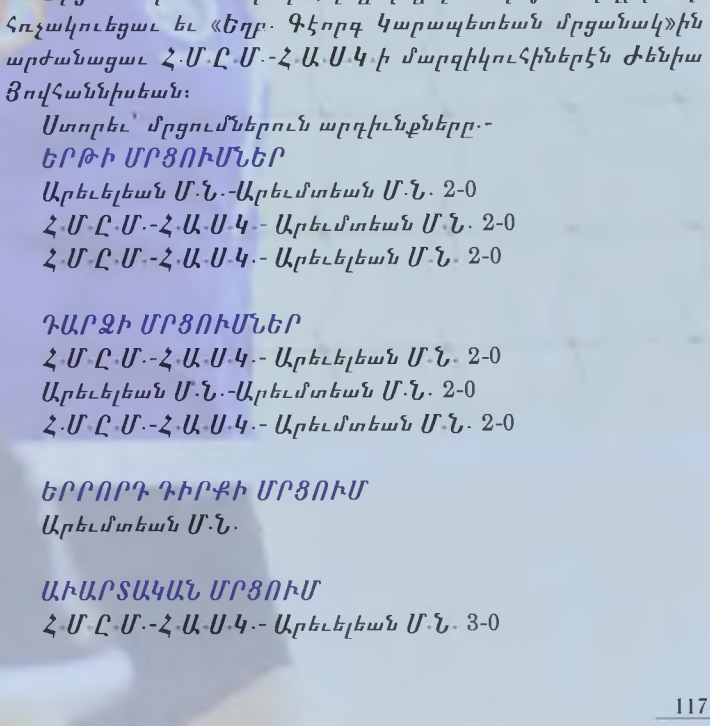 Հռչակուեցաւ եւ «Եղբ. Գէորգ Կարապետեան մրցանակ»ին
արժանացաւ Հ.Մ.Ը.Մ.-Հ.Ա.Ս.Կ.ի մարզիկուհիներէն Ժենիա
Յովհաննիսեան:
Ստորեւ՝ մրցումներուն արդիւնքները.-
ԵՐԹԻ ՄՐՑՈՒՄՆԵՐ
Արեւելեան Մ.Ն.-Արեւմտեան Մ.Ն. 2-0
Հ.Մ.Ը.Մ.-Հ.Ա.Ս.Կ.- Արեւմտեան Մ.Ն. 2-0
Հ.Մ.Ը.Մ.-Հ.Ա.Ս.Կ.- Արեւելեան Մ.Ն. 2-0
ԴԱՐՁԻ ՄՐՑՈՒՄՆԵՐ
Հ.Մ.Ը.Մ.-Հ.Ա.Ս.Կ.- Արեւելեան Մ.Ն. 2-0
Արեւելեան Մ.Ն.-Արեւմտեան Մ.Ն. 2-0
Հ.Մ.Ը.Մ.-Հ.Ա.Ս.Կ.- Արեւմտեան Մ.Ն. 2-0
ԵՐՐՈՐԴ ԴԻՐՔԻ ՄՐՑՈՒՄ
Արեւմտեան Մ.Ն.
ԱՒԱՐՏԱԿԱՆ ՄՐՑՈՒՄ
Հ.Մ.Ը.Մ.-Հ.Ա.Ս.Կ.- Արեւելեան Մ.Ն. 3-0
117